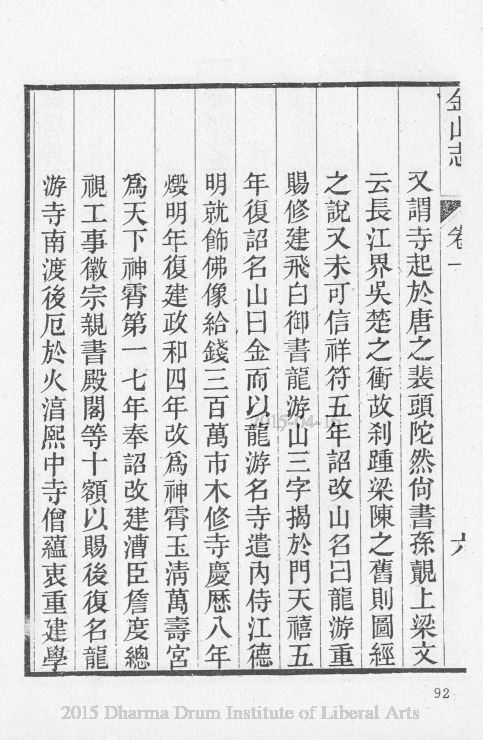 金山志 卷一 六
又謂寺起於唐之裴頭陀然尙書孫覿上梁文
云長江界吳楚之衝故刹踵梁陳之舊則圖經
之說又未可信祥符五年詔改山名曰龍游重
賜修建飛白御書龍游山三字揭於門天禧五
年復詔名山曰金而以龍游名寺遣內侍江德
明就飾佛像給錢三百萬市木修寺慶曆八年
燬明年復建政和四年改爲神霄玉淸萬壽宮
爲天下神霄第一七年奉詔改建漕臣詹度總
視工事徽宗親書殿閣等十額以賜後復名龍
游寺南渡後厄於火湻熙中寺僧蘊衷重建學
2015-04-1
92
2015 Dharma Drum Institute of Liberal Arts